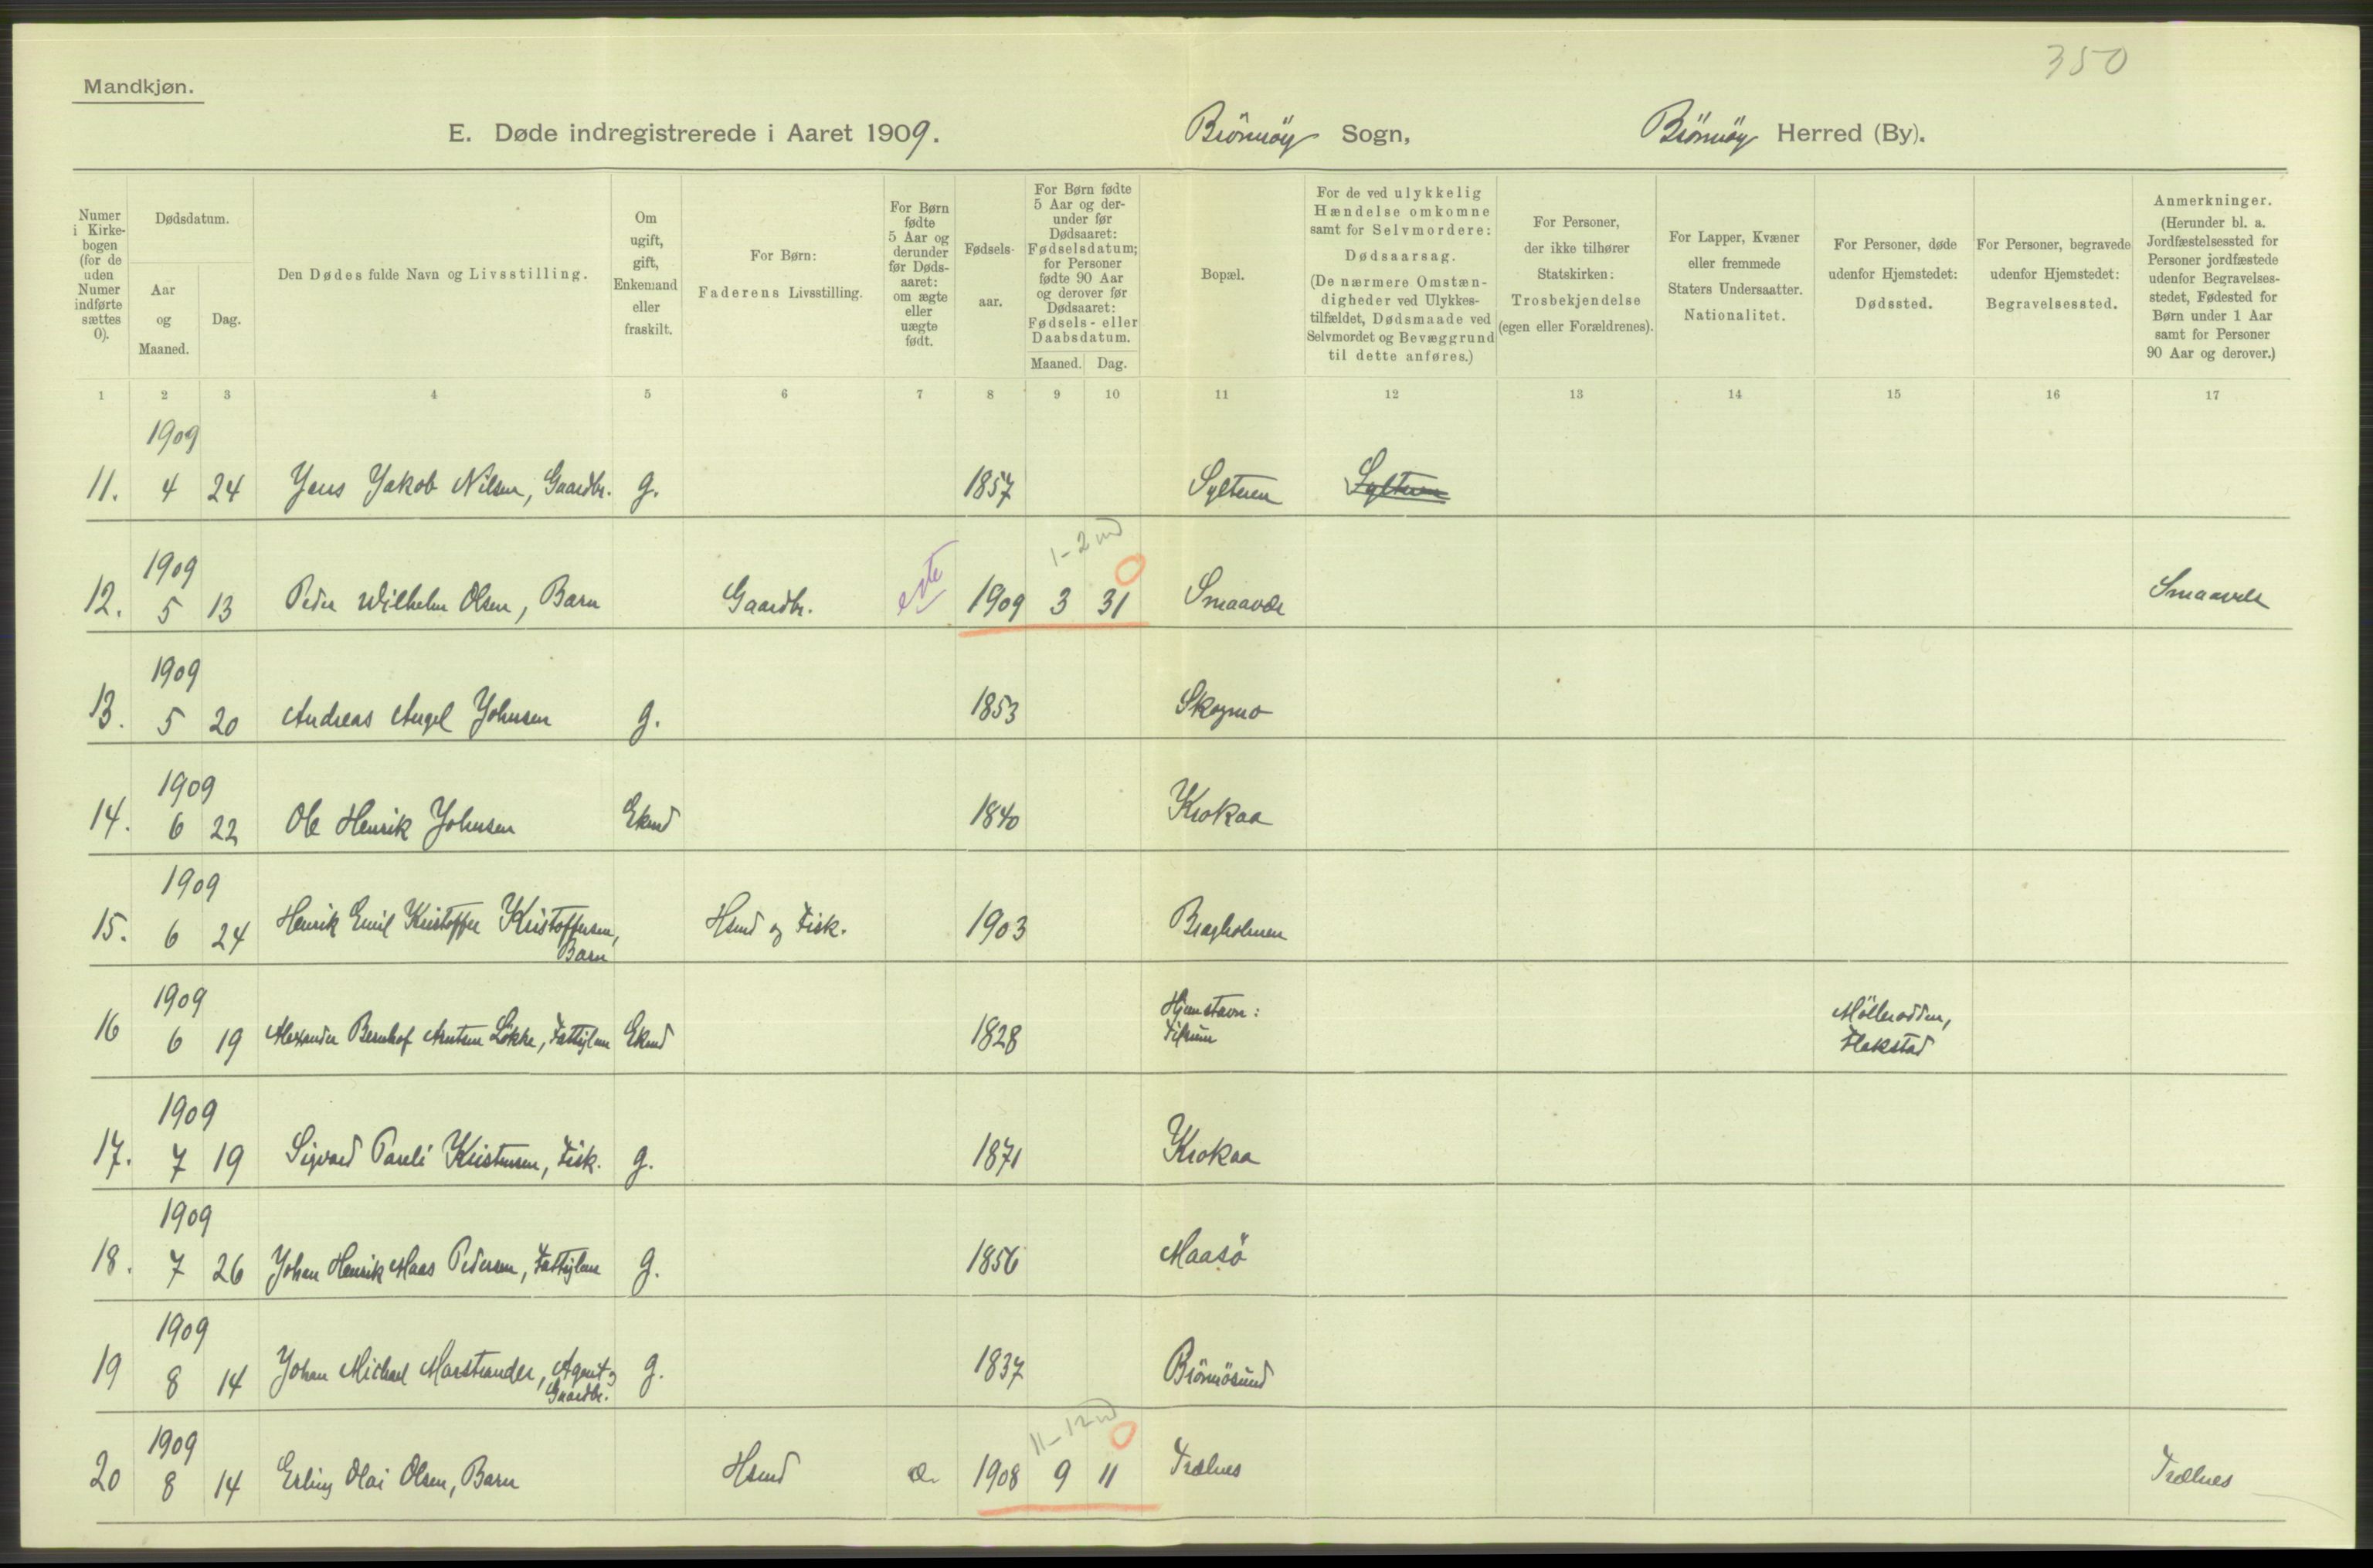 350
Mandkjøn.
E. Døde indregistrerede i Aaret 1909. Brönnöy Sogn, Brönnöy Herred (By).
Numer i Kirke-bogen (for de uden Numer indførte sættes 0).
Dødsdatum.
Aar og Maaned.
Dag.
Den Dødes fulde Navn og Livsstilling.
Om ugift, gift, Enkemand eller fraskilt.
For Børn: Faderens Livsstilling.
For Børn fødte 5 Aar og derunder før Døds-aaret: om ægte eller uægte født.
Fødsels-aar.
For Børn fødte 5 Aar og der-under før Dødsaaret: Fødselsdatum; for Personer fødte 90 Aar og derover før Dødsaaret: Fødsels- eller Daabsdatum.
Maaned. Dag.
Bopæl.
For de ved ulykkelig Hændelse omkomne samt for Selvmordere: Dødsaarsag. (De nærmere Omstæn-digheder ved Ulykkes-tilfældet, Dødsmaade ved Selvmordet og Bevæggrund til dette anføres.)
For Personer, der ikke tilhører Statskirken: Trosbekjendelse (egen eller Forældrenes).
For Lapper, Kvæner eller fremmede Staters Undersaatter. Nationalitet.
For Personer, døde udenfor Hjemstedet: Dødssted.
For Personer, begravede udenfor Hjemstedet: Begravelsessted.
Anmerkninger. (Herunder bl. a. Jordfæstelsessted for Personer jordfæstede udenfor Begravelses-stedet, Fødested for Børn under 1 Aar samt for Personer 90 Aar og derover.)
1 2 3 4 5 6 7 8 9 10 11 12 13 14 15 16 17
1909
11. 4 24 Jens Jakob Nilsen, Gaardbr. g. 1857 Sylteren Sylteren
1909 1-2 md
12. 5 13 Peder Wilhelm Olsen, Barn Gaardbr. egte 1909 3 31 0 Smaavær Smaavær
1909
13. 5 20 Andreas Angel Johnsen g. 1853 Skogmo
1909
14. 6 22 Ole Henrik Johnsen Ekmd 1840 Krokaa
1909
15. 6 24 Henrik Emil Kristoffer Kristoffersen, Hsmd og Fisk. 1903 Bragholmen
Barn
1909 Hjemstavn: Mölleodden,
16 6 19 Alexander Bernhof Arntsen Løkke, Fattiglem Ekmd 1828 Tilrum Flakstad
1909
17. 7 19 Sigvard Pareli Kristensen, Fisk. g. 1871 Krokaa
1909
18. 7 26 Johan Henrik Maas Pedersen, Fattiglem g. 1856 Maasö
1909
19 8 14 Johan Michael Marstrander, Agent og g. 1837 Brönnösund
Gaardbr.
1909 11-12 md
20 8 14 Erling Olai Olsen, Barn Hsmd æ. 1908 9 11 0 Trælnes Trælnes